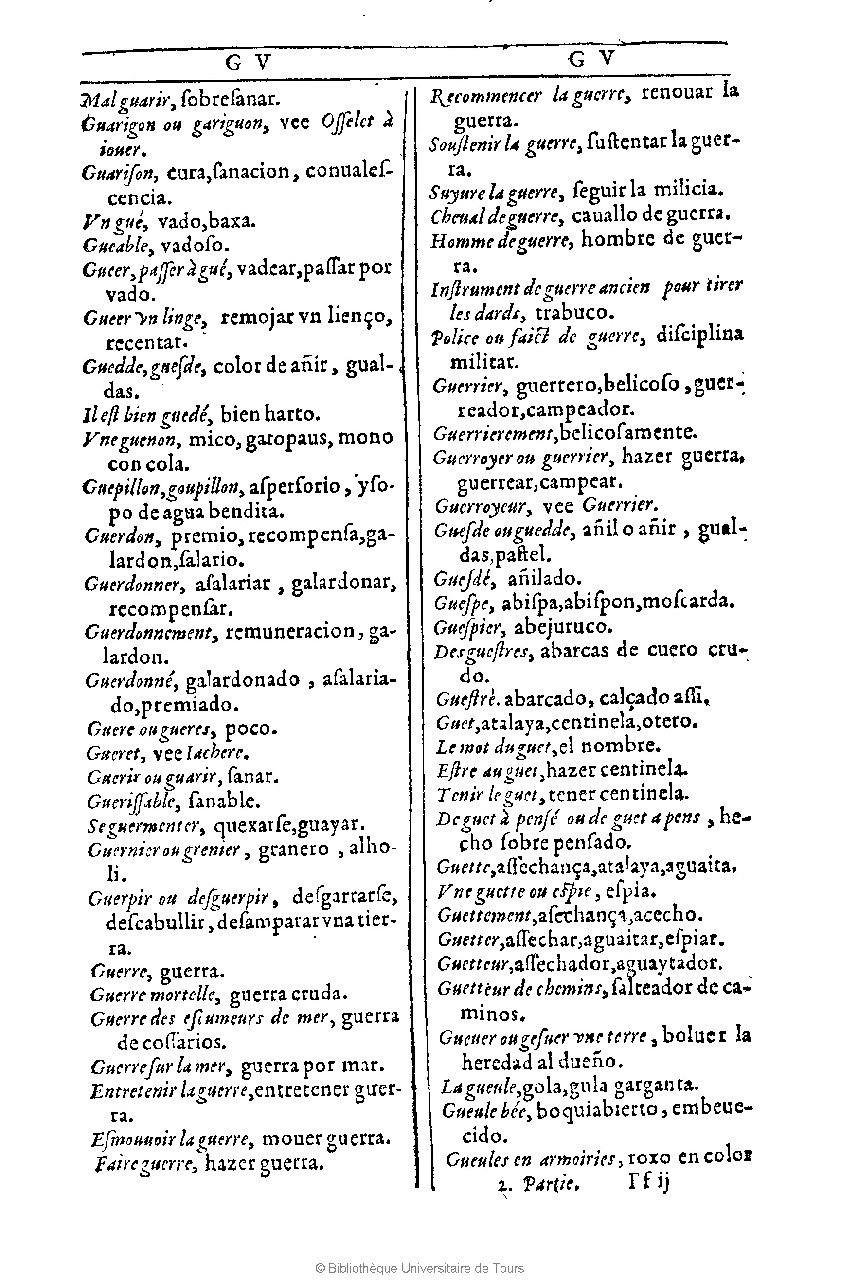 G V
Mal guarir, ſobreſanar.
Guarigon ou gariguon, vee Oſſelet à
iouer.
Guariſon, cura, ſanacion, conualeſ-
cencia.
Vn gué, vado, baxa.
Gueable, vadoſo.
Gueer, paſſer à gué, vadear, paſſar por
vado.
Gueer vn linge, remojar vn lienço,
recentar.
Guedde, gueſde, color de añir, gual-
das.
Il eſt bien guedé, bien harto.
Vne guenon, mico, gatopaus, mono
con cola.
Guepillon, goupillon, aſperſorio, yſo-
po de agua bendita.
Guerdon, premio, recompenſa, ga-
lardon, ſalario.
Guerdonner, aſalariar, galardonar,
recompenſar.
Guerdonnement, remuneracion, ga-
lardon.
Guerdonné, galardonado, aſalaria-
do, premiado.
Guere ou gueres, poco.
Gueret, vee Iachere.
Guerir ou guarir, ſanar.
Gueriſſable, ſanable.
Se guermenter, quexarſe, guayar.
Guernier ou grenier, granero, alho-
li.
Guerpir ou deſguerpir, deſgarrarſe,
deſcabullir, deſamparar vna tier-
ra.
Guerre, guerra.
Guerre mortelle, guerra cruda.
Guerre des eſcumeurs de mer, guerra
de coſſarios.
Guerre ſur la mer, guerra por mar.
Entretenir la guerre, entretener guer-
ra.
Eſmouuoir la guerre, mouer guerra.
Faire guerre, hazer guerra.
G V
Recommencer la guerre, renouar la
guerra.
Souſtenir la guerre, ſuſtentar la guer-
ra.
Suyure la guerre, ſeguir la milicia.
Cheual de guerre, cauallo de guerra.
Homme de guerre, hombre de guer-
ra.
Inſtrument de guerre ancien pour tirer
les dards, trabuco.
Police ou faict de guerre, diſciplina
militar.
Guerrier, guerrero, belicoſo, guer-
reador, campeador.
Guerrierement, belicoſamente.
Guerroyer ou guerrier, hazer guerra,
guerrear, campear.
Guerroyeur, vee Guerrier.
Gueſde ou guedde, añil o añir, gual-
das, paſtel.
Gueſdé, añilado.
Gueſpe, abiſpa, abiſpon, moſcarda.
Gueſpier, abejuruco.
Des gueſtres, abarcas de cuero cru-
do.
Gueſtrè. abarcado, calçado aſſi.
Guet, atalaya, centinela, otero.
Le mot du guet, el nombre.
Eſtre au guet, hazer centinela.
Tenir le guet, tener centinela.
De guet à penſé ou de guet a pens, he-
cho ſobre penſado.
Guette, aſſechança, atalaya, aguaita.
Vne guette ou eſpie, eſpia.
Guettement, aſechança, acecho.
Guetter, aſſechar, aguaitar, eſpiar.
Guetteur, aſſechador, aguaytador.
Guetteur de chemins, ſalteador de ca-
minos.
Gueuer ou geſuer vne terre, boluer la
heredad al dueño.
La gueule, gola, gula garganta.
Gueule bée, boquiabierto, embeue-
cido.
Gueules en armoiries, roxo en color
2. Partie. Ff ij
© Bibliothèque Universitaire de Tours